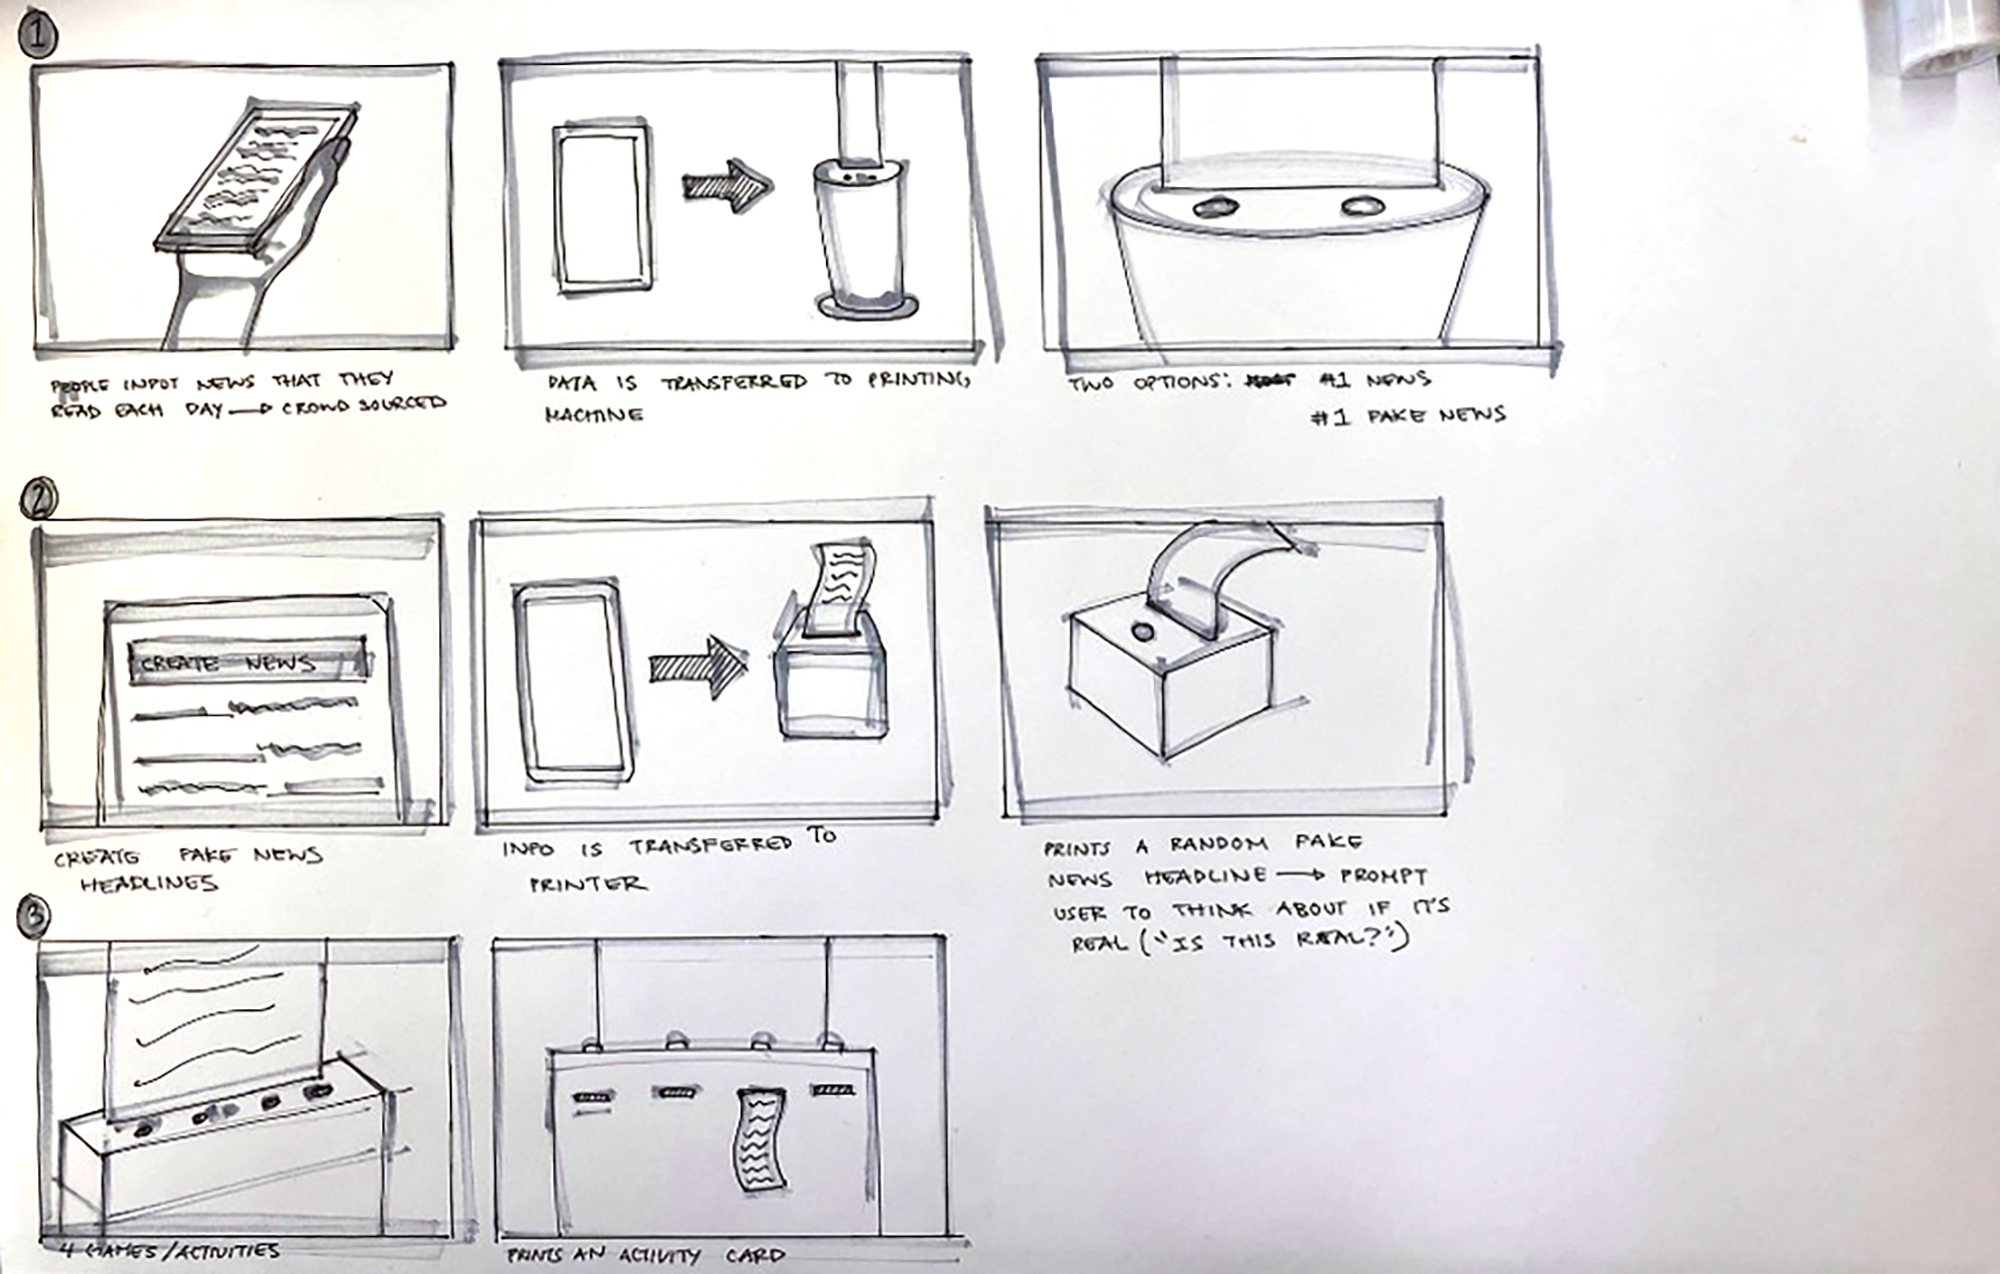 1
PEOPLE INPUT NEWS THAT THEY
READ EACH DAY → CROWD SOURCED
DATA IS TRANSFERRED TO PRINTING
MACHINE
TWO OPTIONS: #1 NEWS
#1 FAKE NEWS
2
CREATE NEWS
CREATE FAKE NEWS
HEADLINES
INFO IS TRANSFERRED TO
PRINTER
PRINTS A RANDOM FAKE
NEWS HEADLINE → PROMPT
USER TO THINK ABOUT IF IT'S
REAL ("IS THIS REAL?")
3
4 GAMES/ACTIVITIES
PRINTS AN ACTIVITY CARD